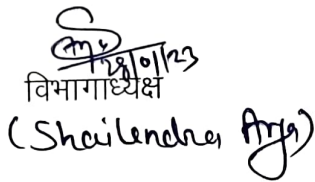 28/01/23
विभागाध्यक्ष
(Shailendra Arya)